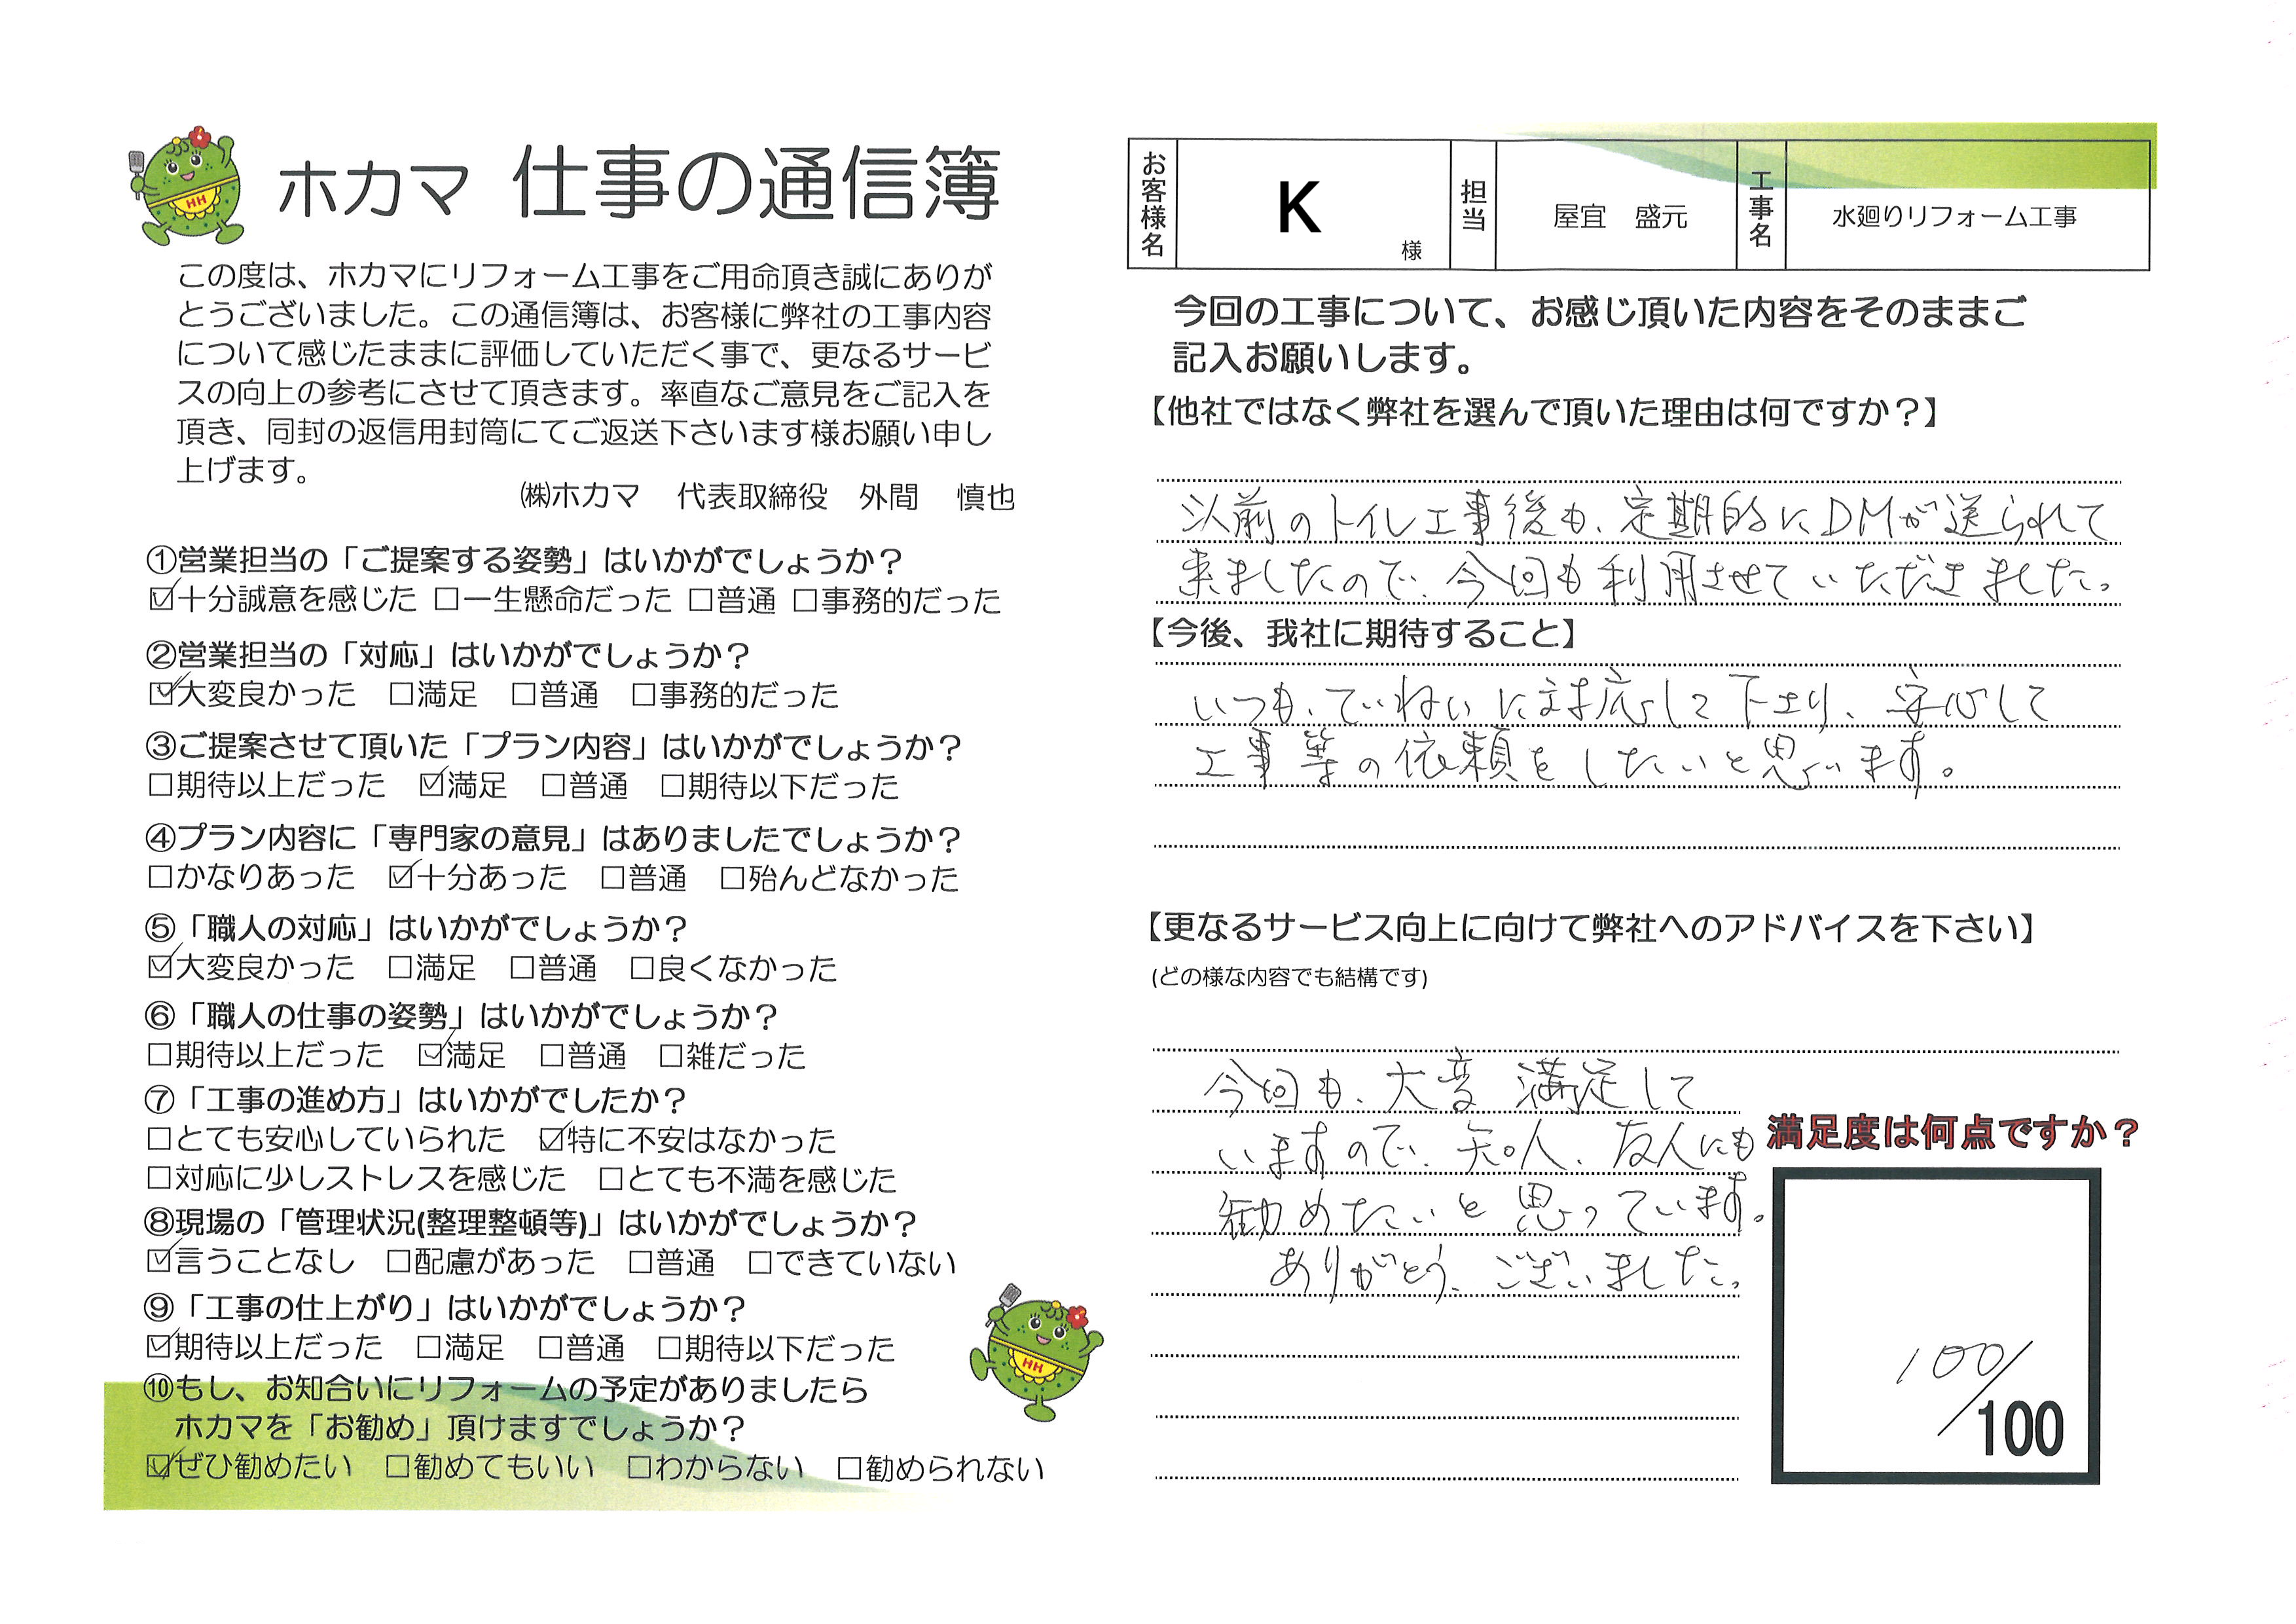 ホカマ 仕事の通信簿
この度は、ホカマにリフォーム工事をご用命頂き誠にありが
とうございました。この通信簿は、お客様に弊社の工事内容
について感じたままに評価していただく事で、更なるサービ
スの向上の参考にさせて頂きます。率直なご意見をご記入を
頂き、同封の返信用封筒にてご返送下さいます様お願い申し
上げます。
㈱ホカマ 代表取締役 外間 慎也
①営業担当の「ご提案する姿勢」はいかがでしょうか？
☑十分誠意を感じた □一生懸命だった □普通 □事務的だった
②営業担当の「対応」はいかがでしょうか？
☑大変良かった □満足 □普通 □事務的だった
③ご提案させて頂いた「プラン内容」はいかがでしょうか？
□期待以上だった ☑満足 □普通 □期待以下だった
④プラン内容に「専門家の意見」はありましたでしょうか？
□かなりあった ☑十分あった □普通 □殆んどなかった
⑤「職人の対応」はいかがでしょうか？
☑大変良かった □満足 □普通 □良くなかった
⑥「職人の仕事の姿勢」はいかがでしょうか？
□期待以上だった ☑満足 □普通 □雑だった
⑦「工事の進め方」はいかがでしたか？
□とても安心していられた ☑特に不安はなかった
□対応に少しストレスを感じた □とても不満を感じた
⑧現場の「管理状況(整理整頓等)」はいかがでしょうか？
☑言うことなし □配慮があった □普通 □できていない
⑨「工事の仕上がり」はいかがでしょうか？
☑期待以上だった □満足 □普通 □期待以下だった
⑩もし、お知合いにリフォームの予定がありましたら
ホカマを「お勧め」頂けますでしょうか？
☑ぜひ勧めたい □勧めてもいい □わからない □勧められない
HH
HH
お客様名 K 様 担当 屋宜 盛元 工事名 水廻りリフォーム工事
今回の工事について、お感じ頂いた内容をそのままご
記入お願いします。
【他社ではなく弊社を選んで頂いた理由は何ですか？】
以前のトイレ工事後も、定期的にDMが送られて
来ましたので、今回も利用させていただきました。
【今後、我社に期待すること】
いつも、ていねいに対応して下さり、安心して
工事等の依頼をしたいと思います。
【更なるサービス向上に向けて弊社へのアドバイスを下さい】
(どの様な内容でも結構です)
今回も、大変満足して
いますので、知人、友人にも
勧めたいと思っています。
ありがとうございました。
満足度は何点ですか？
100/100